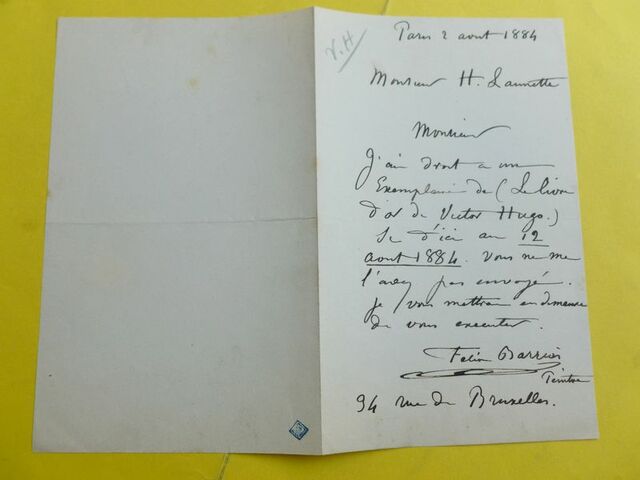 V.H
Paris 2 août 1884
Monsieur H. Launette
Monsieur
J'ai droit a un
Exemplaire de (Le livre
d'or de Victor Hugo.)
Si d'ici au 12
août 1884. vous ne me
l'avez pas envoyé.
je vous mettrai en demeure
de vous executer.
Félix Barrias
Peintre
34 rue de Bruxelles.